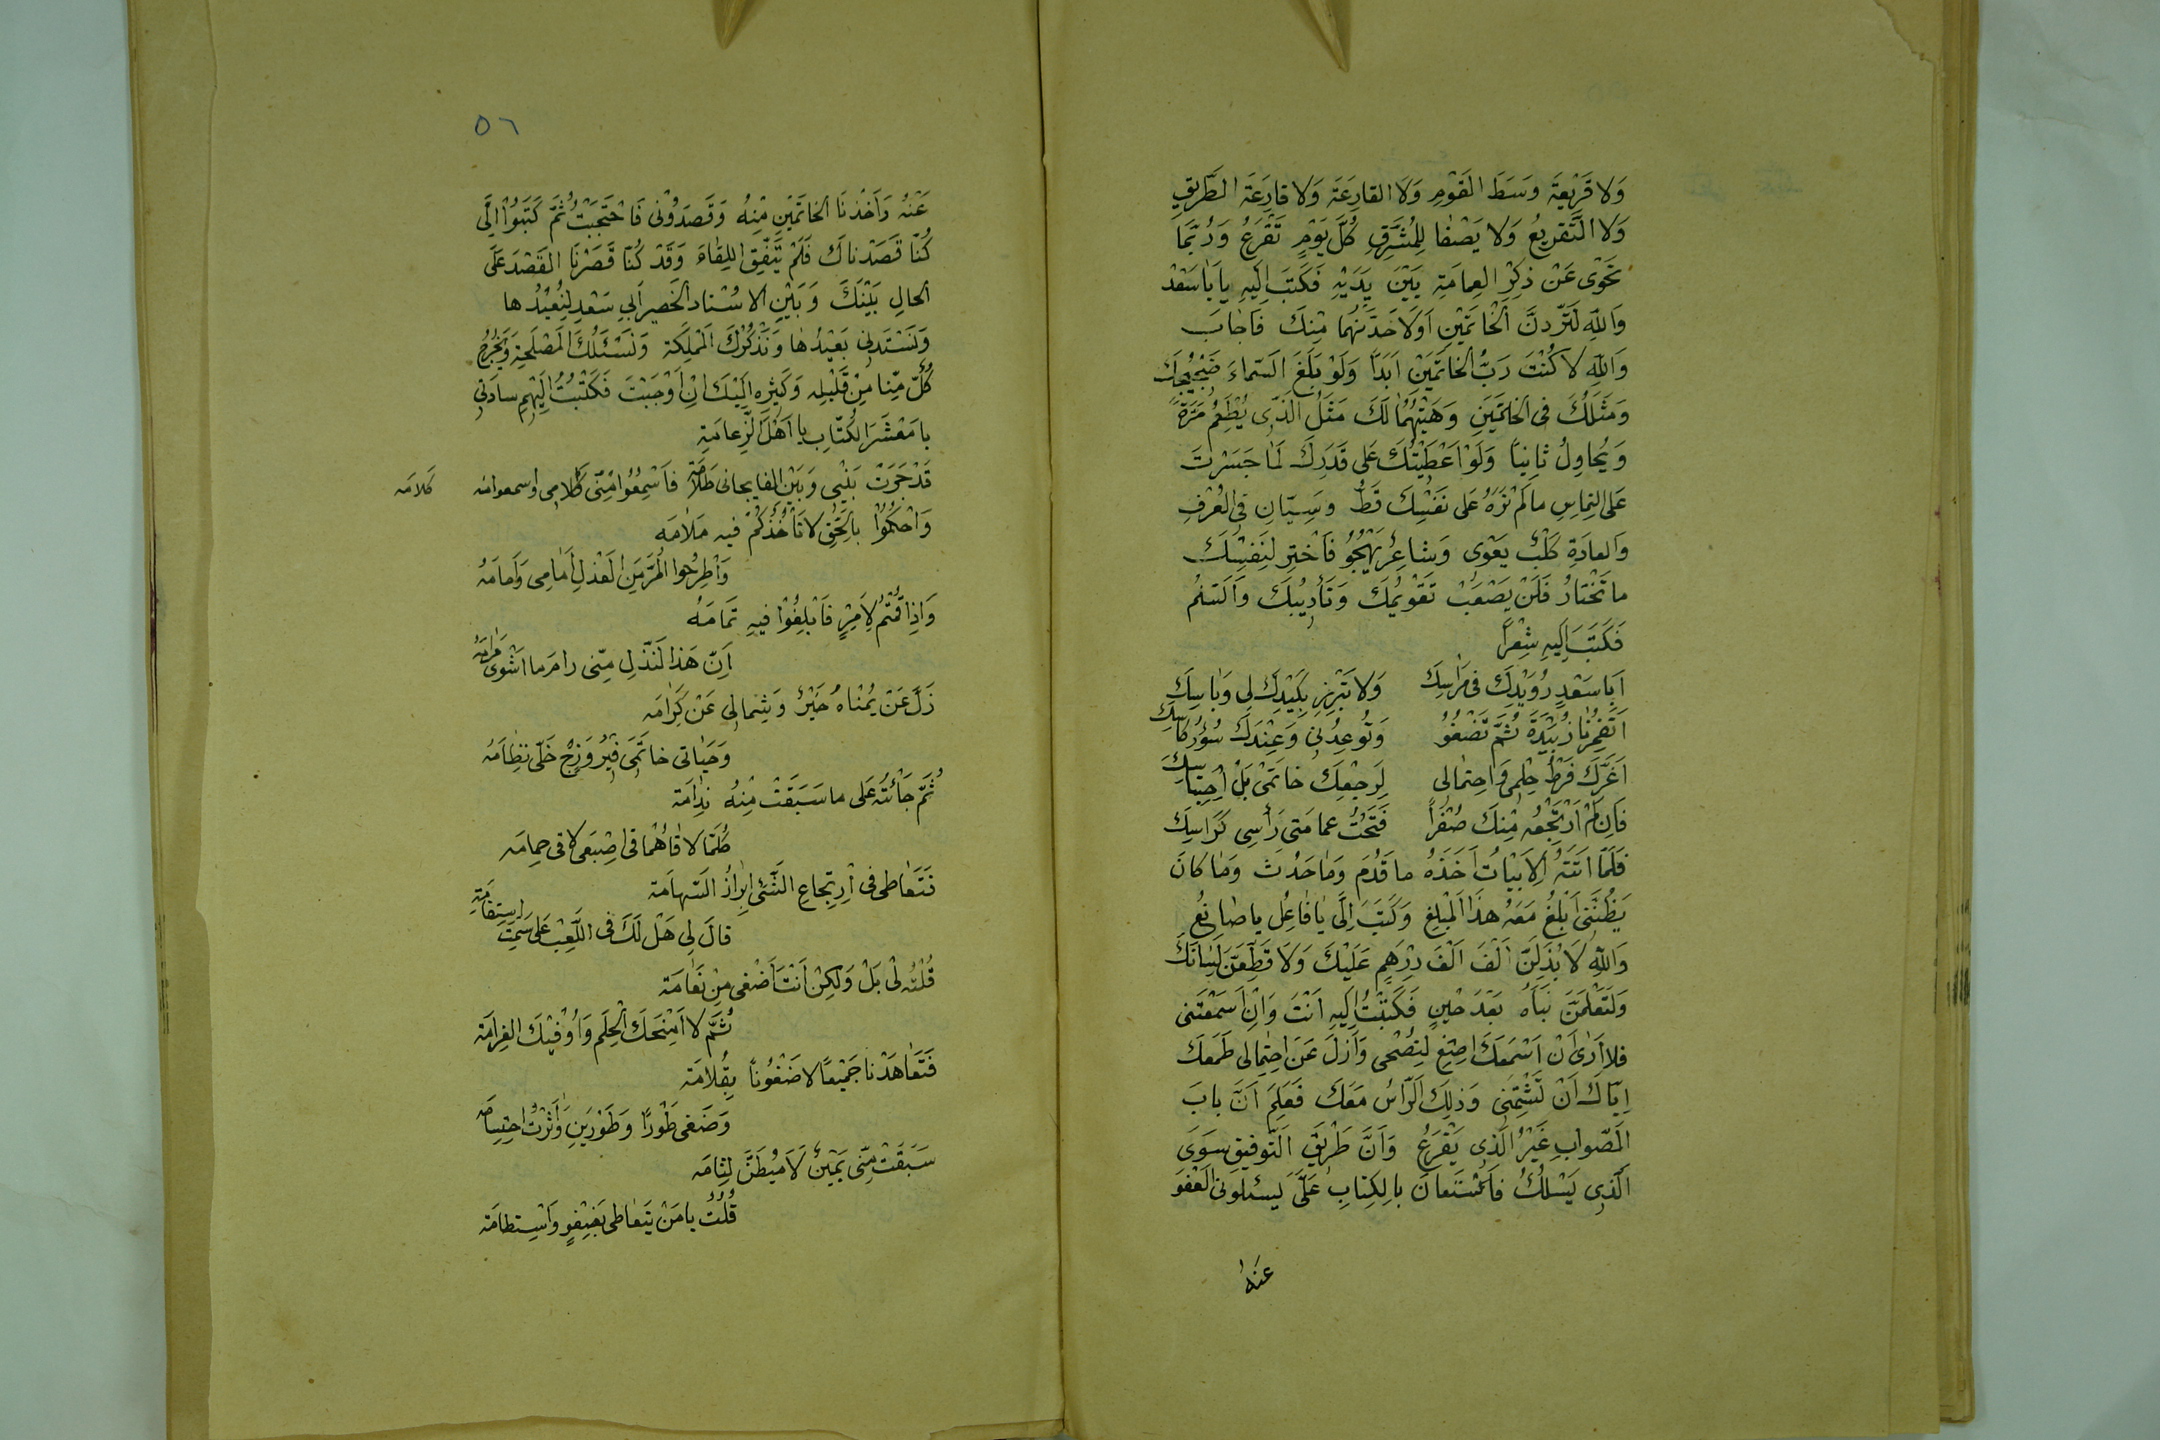 وَلا قَرِيْعَةَ وَسَطَ القَوْمِ وَلَا القارِعَةَ وَلا قارِعَةَ الطَّرِيقِ
وَلا التَّقرِيعُ وَلا يَصْفا لِلمُشَرِّقِ كُلَّ يَوْمٍ تَقْرَعُ وَرُبَّمَا
نَحْوى عَنْ ذِكِرْ العِمامَةِ بَيْنَ يَدَيْهِ فَكَتَبَ اِلَيهِ يا اَبا سَعْدْ
وَاللهِ لَتَرّدنَّ الْخاتَمَيْنِ اَوَلآخَذَنّهُما مِنْكَ فَاَجابَ
وَاللهِ لا كُنْتَ رَبُّ الخاتَمَيْنِ اَبَدًا وَلَوْ بَلَغَ السَّماءَ ضَجِيْجُكَ
وَمَثَلُكَ فى الخاتَمَينِ وَهَبْتُهُمُا لَكَ مَثَلُ الَّذى يُطْعِمُ مَرَّةً
وَيُحاوِلُ ثانِياً وَلَوْ اَعْطَيْتُكَ عَلى قَدَرِكَ لَما جَسَرْتَ
عَلى التِماسِ مالَمْ تَرَهُ عَلى نَفْسِكَ قَطُّ وَسِيّانِ فِى العُرْفِ
وَالعادَةِ كَلْبٌ يَعْوى وَشاعِرٌ يَهْجُوُ فَاْخْتِر لِنَفِسْكَ
ما تَخْتارُ فَلَنْ يَصْعَبْ تَقوِيمُكَ وَتَأدِيبُكَ وَالسَّلمُ
فَكَتَبَ اِلَيهِ شِعْراً
اَبا سَعْدٍ رُوَيْدِكَ فى مَراسِكَ وَلا تَبْرِزِ بِكَيْدِكَ لى وَباسِكَ
وَتُوعِدُنى وَعِنْدَكَ سُؤْرُ كاسِكَ
اَغَرَّكَ فَرْطُ حِلْمى وَاحِتمالى لِرَجْعِكَ خاتَمىْ بَلْ اِحْتِباسِكَ
فَاِن لَمْ اَرْتَجِعْهُ مِنْكَ صُفْراً فَتَحْتُ عمامَتى رَأسى كَرَاسِكَ
فَلَمّا اَتَتَهُ الاَبْيٰاتُ اَخَذَهُ ما قَدُمَ وَمٰا حَدُثَ وَمٰا كانَ
يَظُنُّنى اَبْلُغُ مَعَهُ هذَا المَبْلَغِ وَكَتَبَ اِلَىَّ يٰا فٰاعِلُ يا صٰانِعُ
وَاللهِ لَابْذِلَنَّ اَلْفَ اَلْفَ دِرْهَمٍ عَلَيْكَ وَلَا قَطِّعَنَّ لِسٰانَكَ
وَلَتَعْلَمَنَّ نَبَأهُ بَعْدَ حْينٍ فَكَتَبْتُ اِلَيهِ اَنْتَ وَاِنْ اَسْمَعْتَنى
فلا اَرىٰ اَنْ اَسْمَعَكَ اصْنِعِ لِنُصْحى وَاَزلَ عَنَ اِحتِمالى طَمَعَكَ
اِيّاكَ اَنْ تَشْتِمَنى وَذلِكَ الرّاسُ مَعَكَ فَعَلِمَ اَنَّ بابَ
الصّوابِ غَيْرُ الَّذى يَقْرَعُ وَاَنَّ طَرْيقَ التَّوفيقِ سِوَى
الَّذى يَسْلكُ فَاسْتَعانَ بِالكِتابِ عَلَىَّ يَسئلونى العَفْوَ
عَنْهُ
٥٦
عَنْهُ وَاَخْذنَا الخاتَمَيْنِ مِنْهُ وَقَصَدُوْنى فَاحْتَجَبْتُ ثُمَّ كَتَبُوْا اِلَىَّ
كُنّا قَصَدْناكَ فَلَمْ يَتَّفِقِ اللِقٰاءُ وَقَدْ كُنّا قَصَرْنَا القَصْدَ عَلى
الحالِ بَيْنِكَ وَبَيْنِ الاسْتاد الحَصير اَبى سَعْدِ لِنُعيْدُها
وَنَسْتَدِنى بَعَيْدُها وَنَذْكُرُكَ المَملِكَة وَنَسْئَلُكَ المَصْلَحِةِ وَيَخْرُجُ
كُلّ مِنّا مِنْ قَلْيلِه وَكَثيْرِه اِلَيْكَ اِنْ اَوْجَبْتَ فَكَتْبْتُ اِلَيْهِمِ سادَتى
يا مَعْشَرَ الكُتّابِ يا اَهْلَ الزِّعامَةِ
قَدْ جَرَتْ بَيْنى وَبَيْنَ الفايجانى طَلّامَّةً فَاَسْمِعُوْا مِنّى كَلامى اوسمعوامنه
كَلامَه
وَاحْكُمُوْا بِالحَقِّ لا تَأخُذْكُمْ فيه مَلامَه
وَاْطِرحُوا المُرَّ مِنَ العَذلِ اَمامى وَاَمامَهُ
وَاذِا قُمْتُم لِاَمْرٍ فَابْلِغُوْا فيهِ تَمامَهُ
اِنّ هَذا لنّذلِ مِنّى رامَ ما اَشْوى مَرامَهُ
زَلَّ عَنْ يُمْناهُ خَيْرٌ وَشِمالى عَنْ كَرامَه
وَحَباتى خاتَمَى فيْرُوَزِجٌ حَلّى نظِامَهُ
ثُمَّ جآئَتهُ عَلى ما سَبَقَتْ مِنْهُ نِدامَة
طُلّما لا قاهُما فى اِصْبَعى لا فى حِمامَه
نَتَعٰاطى فى اِرتِجاعِ الشَّئ اِبرازُ السّهامَة
قالَ لى هَلْ لَكَ فى اللَّعِبْ عَلى سَمتِ استِقامَةِ
قُلْتُه لْى بَلْ وَلكِنْ اَنْتَ اَضْغى مِنْ نَعامَة
ثُمَّ لا اَمْنَحَكَ الحِلمِ وَاُوْفيْكَ الغِرامَة
فَتَعٰاهَدْنا جَمْيعًا لا ضَغُونا بِقُلامَة
وَضَغى طَوْرًا وَطَوْرَينِ وَاَثَرْتُ اِحتِسٰامَه
سَبَقَتْ مِنّى يَمْينٌ لَاَمُيطَنَّ لِثامَه
قُلْتُ يا مَنْ يَتَعاطى بَغِيْفٍ وَاسْتِطامَة